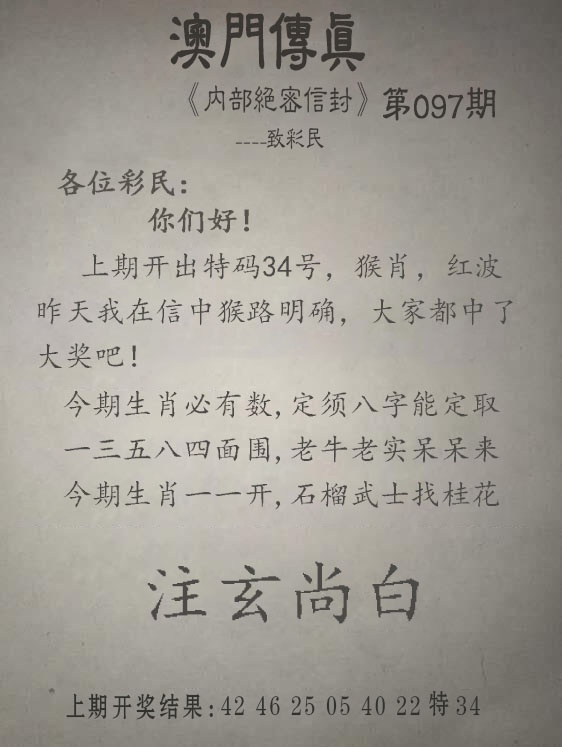 澳門傳真
《内部絕密信封》第097期
----致彩民
各位彩民：
你们好！
上期开出特码34号，猴肖，红波
昨天我在信中猴路明确，大家都中了
大奖吧！
今期生肖必有数,定须八字能定取
一三五八四面围,老牛老实呆呆来
今期生肖一一开,石榴武士找桂花
注玄尚白
上期开奖结果:42 46 25 05 40 22 特 34